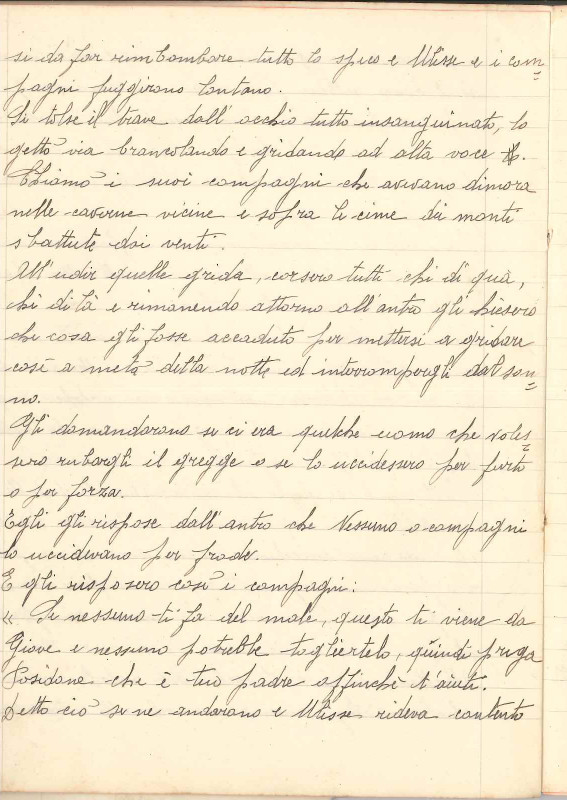 si da far rimbombare tutto lo speco e Ulisse e i com=
pagni fuggirono lontano.
Si tolse il trave dall'occhio tutto insanguinato, lo
gettò via brancolando e gridando ad alta voce
Chiamò i suoi compagni che avevano dimora
nelle caverne vicine e sopra le cime dei monti
sbattute dai venti.
All'udir quelle grida, corsero tutti chi di quà,
chi di là e rimanendo attorno all'antro gli chiesero
che cosa gli fosse accaduto per mettersi a gridare
così a metà della notte ed interrompergli dal son=
no.
Gli domandarono se ci era qualche uomo che voles=
sero rubargli il gregge o se lo uccidessero per furto
o per forza.
Egli gli rispose dall'antro che Nessuno o compagni
lo uccidevano per frode.
E gli risposero così i compagni:
« Se nessuno ti fa del male, questo ti viene da
Giove e nessuno potrebbe togliertelo, quindi prega
Posidone che è tuo padre affinchè t'aiuti.
Detto ciò se ne andarono e Ulisse rideva contento